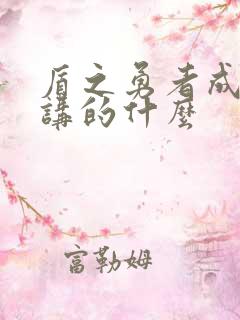 盾之勇者成
講的什麼
富勒姆